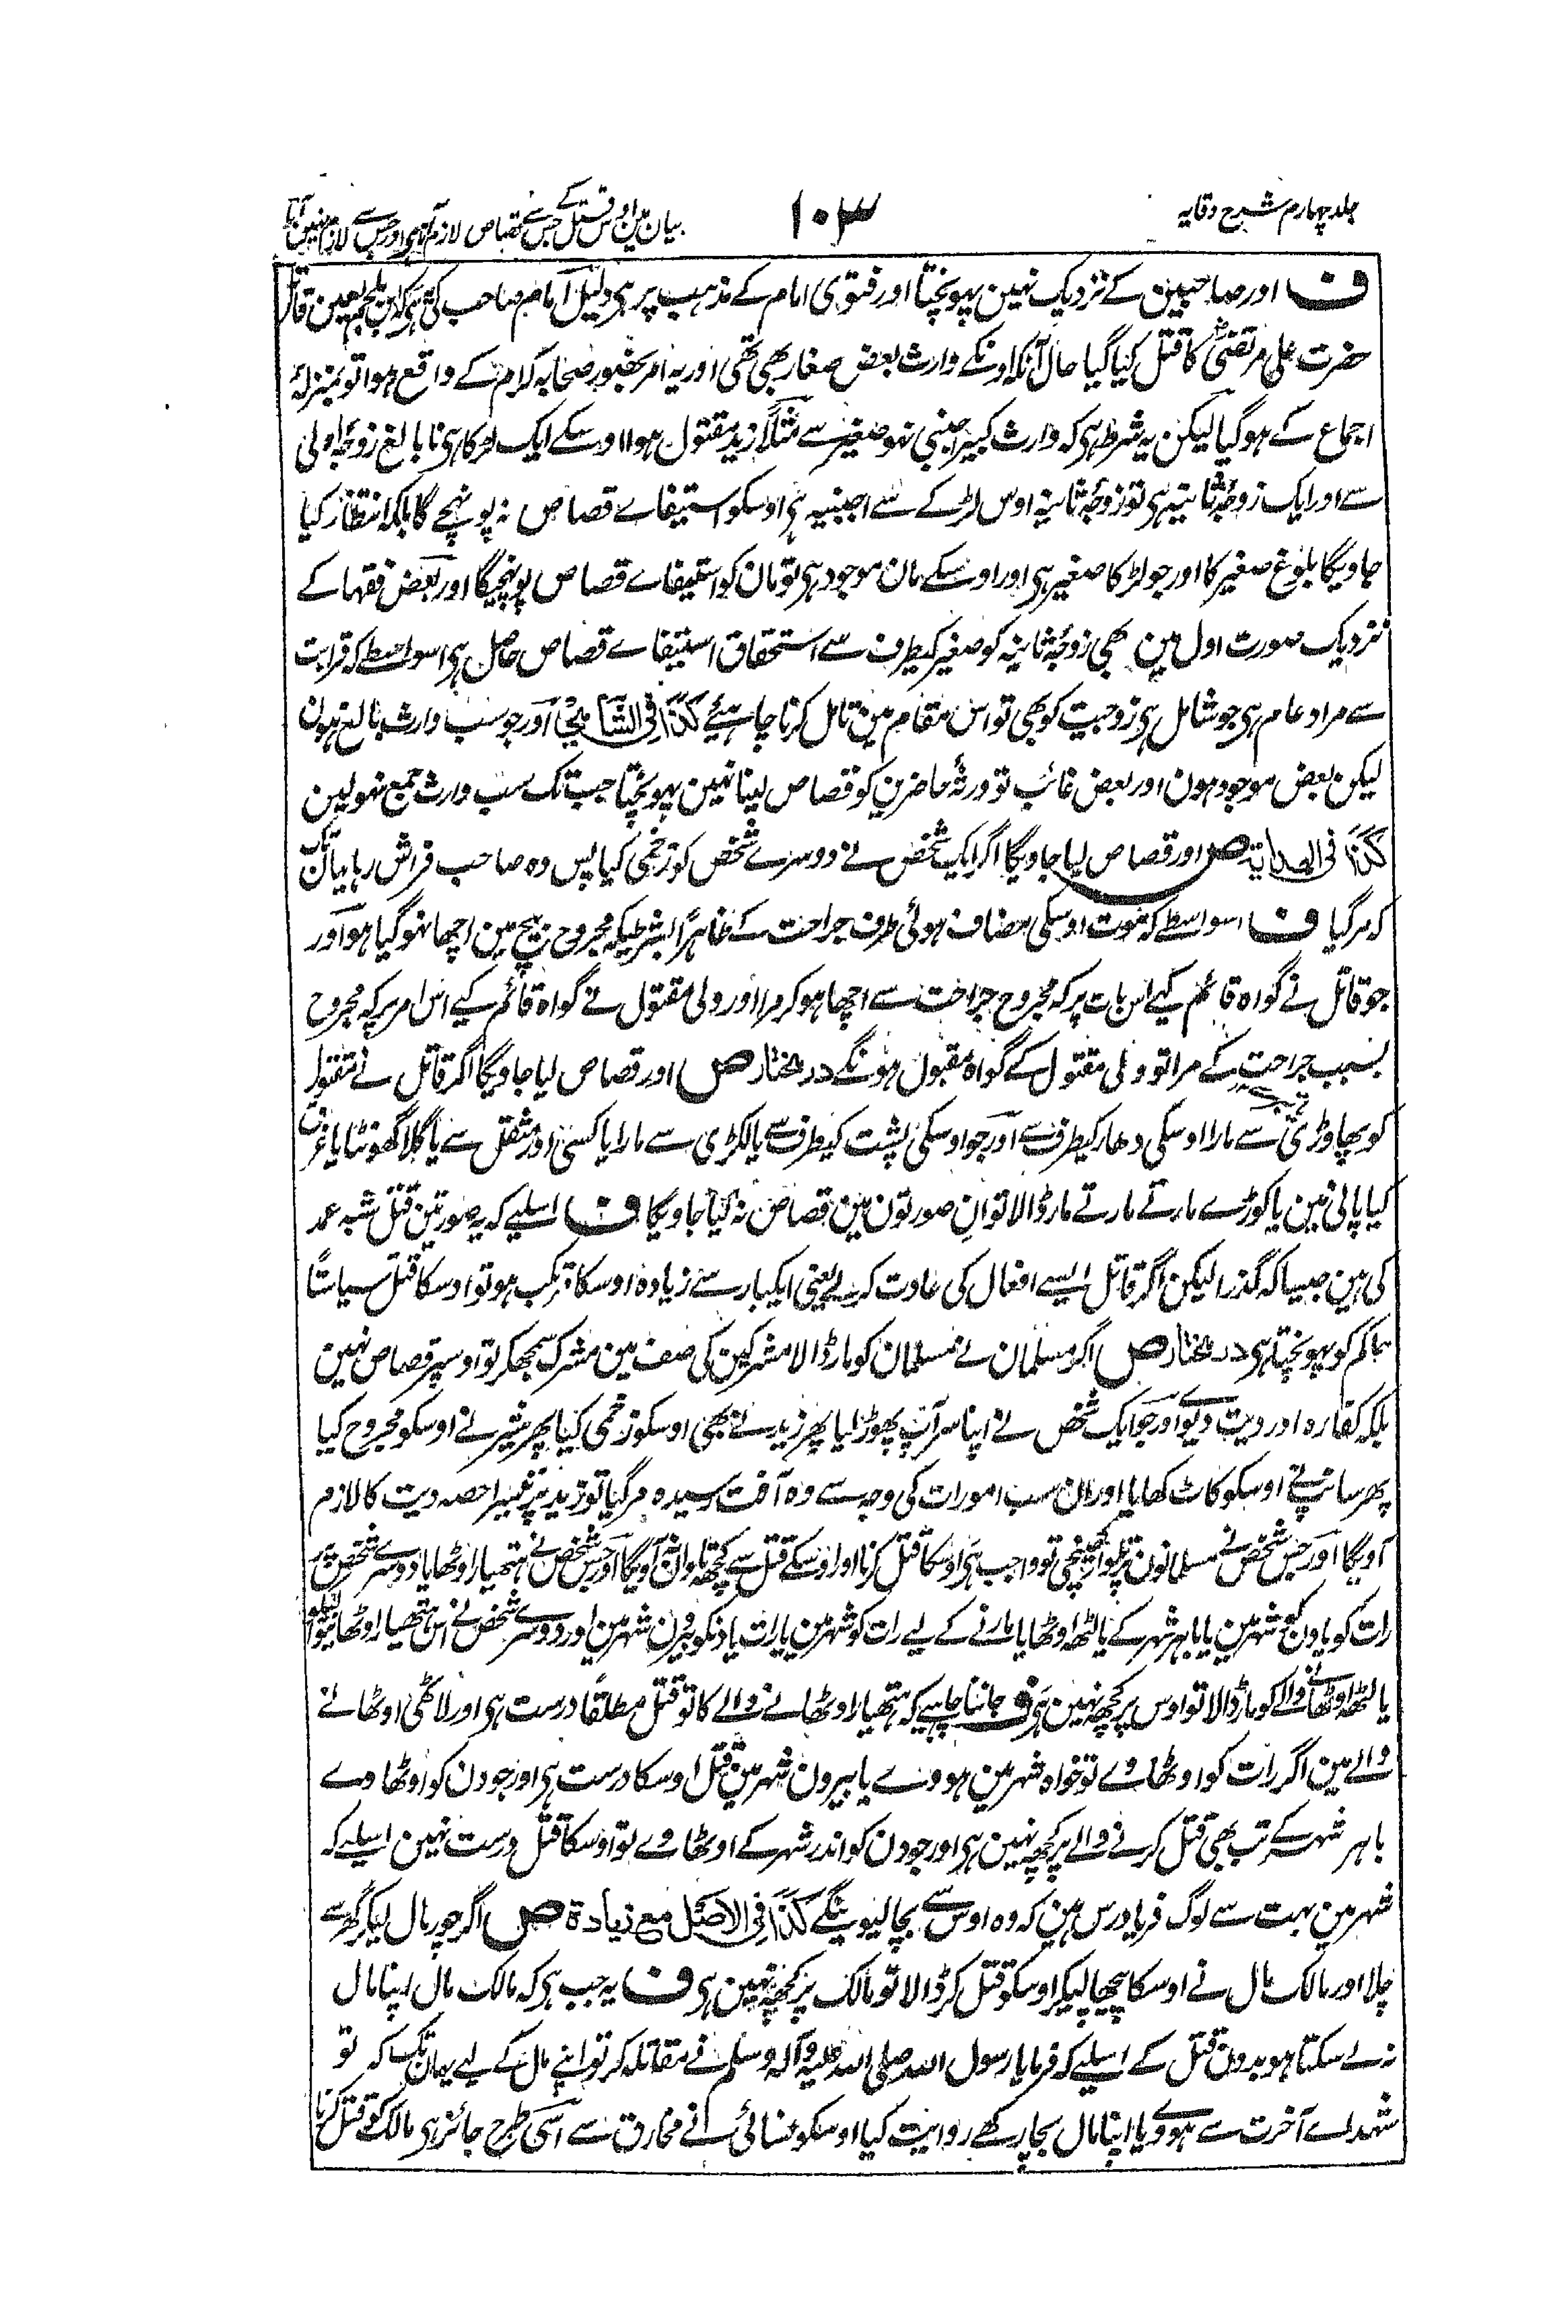 جلد چہارم شرح وقایہ
۱۰۳
بیان مین اوس قتل کے جس سے قصاص لازم آتا ہی اور جس سے لازم نہین آتا
ف اور صاحبین کے نزدیک نہین پہونچتا اور فتوی امام کے مذہب پر ہی دلیل امام صاحب کی یہ ہی کہ ابن ملجم لعین قاتل
حضرت علی مرتضیٰ کا قتل کیا گیا حال آنکہ اونکے وارث بعض صغار بھی تھی اور یہ امر بحضور صحابہ کرام کے واقع ہوا تو بمنزلۂ
اجماع کے ہو گیا لیکن یہ شرط ہی کہ وارث کبیر اجنبی نہو صغیر سے مثلاً زید مقتول ہوا اوسکے ایک لڑکا ہی نابالغ زوجۂ اولی
سے اور ایک زوجۂ ثانیہ ہی تو زوجۂ ثانیہ اوس لڑکے سے اجنبیہ ہی اوسکو استیفاے قصاص نہ پونہچے گا بلکہ انتظار کیا
جاویگا بلوغ صغیر کا اور جو لڑکا صغیر ہی اور اوسکے مان موجود ہی تو مان کو استیفاے قصاص پونہچیگا اور بعض فقہا کے
نزدیک صورت اول مین بھی زوجۂ ثانیہ کو صغیر کیطرف سے استحقاق استیفاے قصاص حاصل ہی اسواسطے کہ قرابت
سے مراد عام ہی جو شامل ہی زوجیت کو بھی تو اس مقام مین تامل کرنا چاہئے کذا فی الشامی اور جو سب وارث بالغ ہون
لیکن بعض موجود ہون اور بعض غائب تو ورثۂ حاضرین کو قصاص لینا نہین پہونچتا جب تک سب وارث جمع نہولین
کذا فی الہدایۃ ص اور قصاص لیا جاویگا اگر ایک شخص نے دوسرے شخص کو زخمی کیا پس وہ صاحب فراش رہا یہان تک
کہ مر گیا ف اسواسطے کہ موت اوسکی مضاف ہوئی طرف جراحت کے ظاہراً بشرطیکہ مجروح بیچ مین اچھا نہو گیا ہو اور
جو قاتل نے گواہ قائم کیے اس بات پر کہ مجروح جراحت سے اچھا ہوکر مرا اور ولی مقتول نے گواہ قائم کیے اس امر پر کہ مجروح
بسبب جراحت کے مرا تو ولی مقتول کے گواہ مقبول ہونگے در مختار ص اور قصاص لیا جاویگا اگر قاتل نے مقتول
کو پھاوڑی سے مارا اوسکی دھار کیطرف سے اور جو اوسکی پشت کیطرف سے یا لکڑی سے مارا یا کسی اور مثقل سے یا گلا گھونٹا یا غرق
کیا پانی مین یا کوڑے مارتے مارتے مار ڈالا تو ان صورتون مین قصاص نہ لیا جاویگا ف اسلیے کہ یہ صورتین قتل شبہ عمد
کی ہین جیسا کہ گذرا لیکن اگر قاتل ایسے افعال کی عادت کرلے یعنی ایکبار سے زیادہ اوسکا مرتکب ہو تو اوسکا قتل سیاستاً
حاکم کو پہونچتا ہی در مختار ص اگر مسلمان نے مسلمان کو مار ڈالا مشرکین کی صف مین مشرک سمجھکر تو اوسپر قصاص نہین
بلکہ کفارہ اور دیت دیوے اور جو ایک شخص نے اپنا سر آپ پھوڑ لیا پھر زید نے بھی اوسکو زخمی کیا پھر شیر نے اوسکو مجروح کیا
پھر سانپ نے اوسکو کاٹ کھایا اور ان سب امورات کی وجہ سے وہ آفت رسیدہ مر گیا تو زید پر تیسرا حصہ دیت کا لازم
آویگا اور جس شخص نے مسلمانون پر تلوار کھینچی تو واجب ہی اوسکا قتل کرنا اور اوسکے قتل سے کچھ تاوان نہ آویگا اور جس شخص نے ہتھیار اوٹھایا دوسرے شخص پر
رات کو یا دن کو شہر مین یا باہر شہر کے یا لٹھ اوٹھایا مارنے کے لیے رات کو شہر مین یا رات یا دنکو بیرون شہر مین اور دوسرے شخص نے اس ہتھیار اوٹھانیوالیکو
یا لٹھ اوٹھانے والا کو مار ڈالا تو اوس پر کچھ نہین ہی ف جاننا چاہیے کہ ہتھیار اوٹھانے والے کا تو قتل مطلقاً درست ہی اور لاٹھی اوٹھانے
والے مین اگر رات کو اوٹھاوے تو خواہ شہر مین ہووے یا بیرون شہر مین قتل اوسکا درست ہی اور جو دن کو اوٹھاوے
باہر شہر کے تب بھی قتل کرنے والے پر کچھ نہین ہی اور جو دن کو اندر شہر کے اوٹھاوے تو اوسکا قتل درست نہین اسلیے کہ
شہر مین بہت سے لوگ فریادرس ہین کہ وہ اوس سے بچا لیوینگے کذا فی الاصل مع زیادۃ ص اگر چور مال لیکر گھر سے
چلا اور مالک مال نے اوسکا پیچھا لیکر اوسکو قتل کر ڈالا تو مالک پر کچھ نہین ہی ف یہ جب ہی کہ مالک مال اپنا مال
نہ لے سکتا ہو بدون قتل کے اسلیے کہ فرمایا رسول اللہ صلی اللہ علیہ وآلہ وسلم نے مقاتلہ کر تو اپنے مال کے لیے یہان تک کہ تو
شہداے آخرت سے ہووے یا اپنا مال بچا رکھے روایت کیا اوسکو نسائی نے مخارق سے اسی طرح جائز ہی مالک کو قتل کرنا